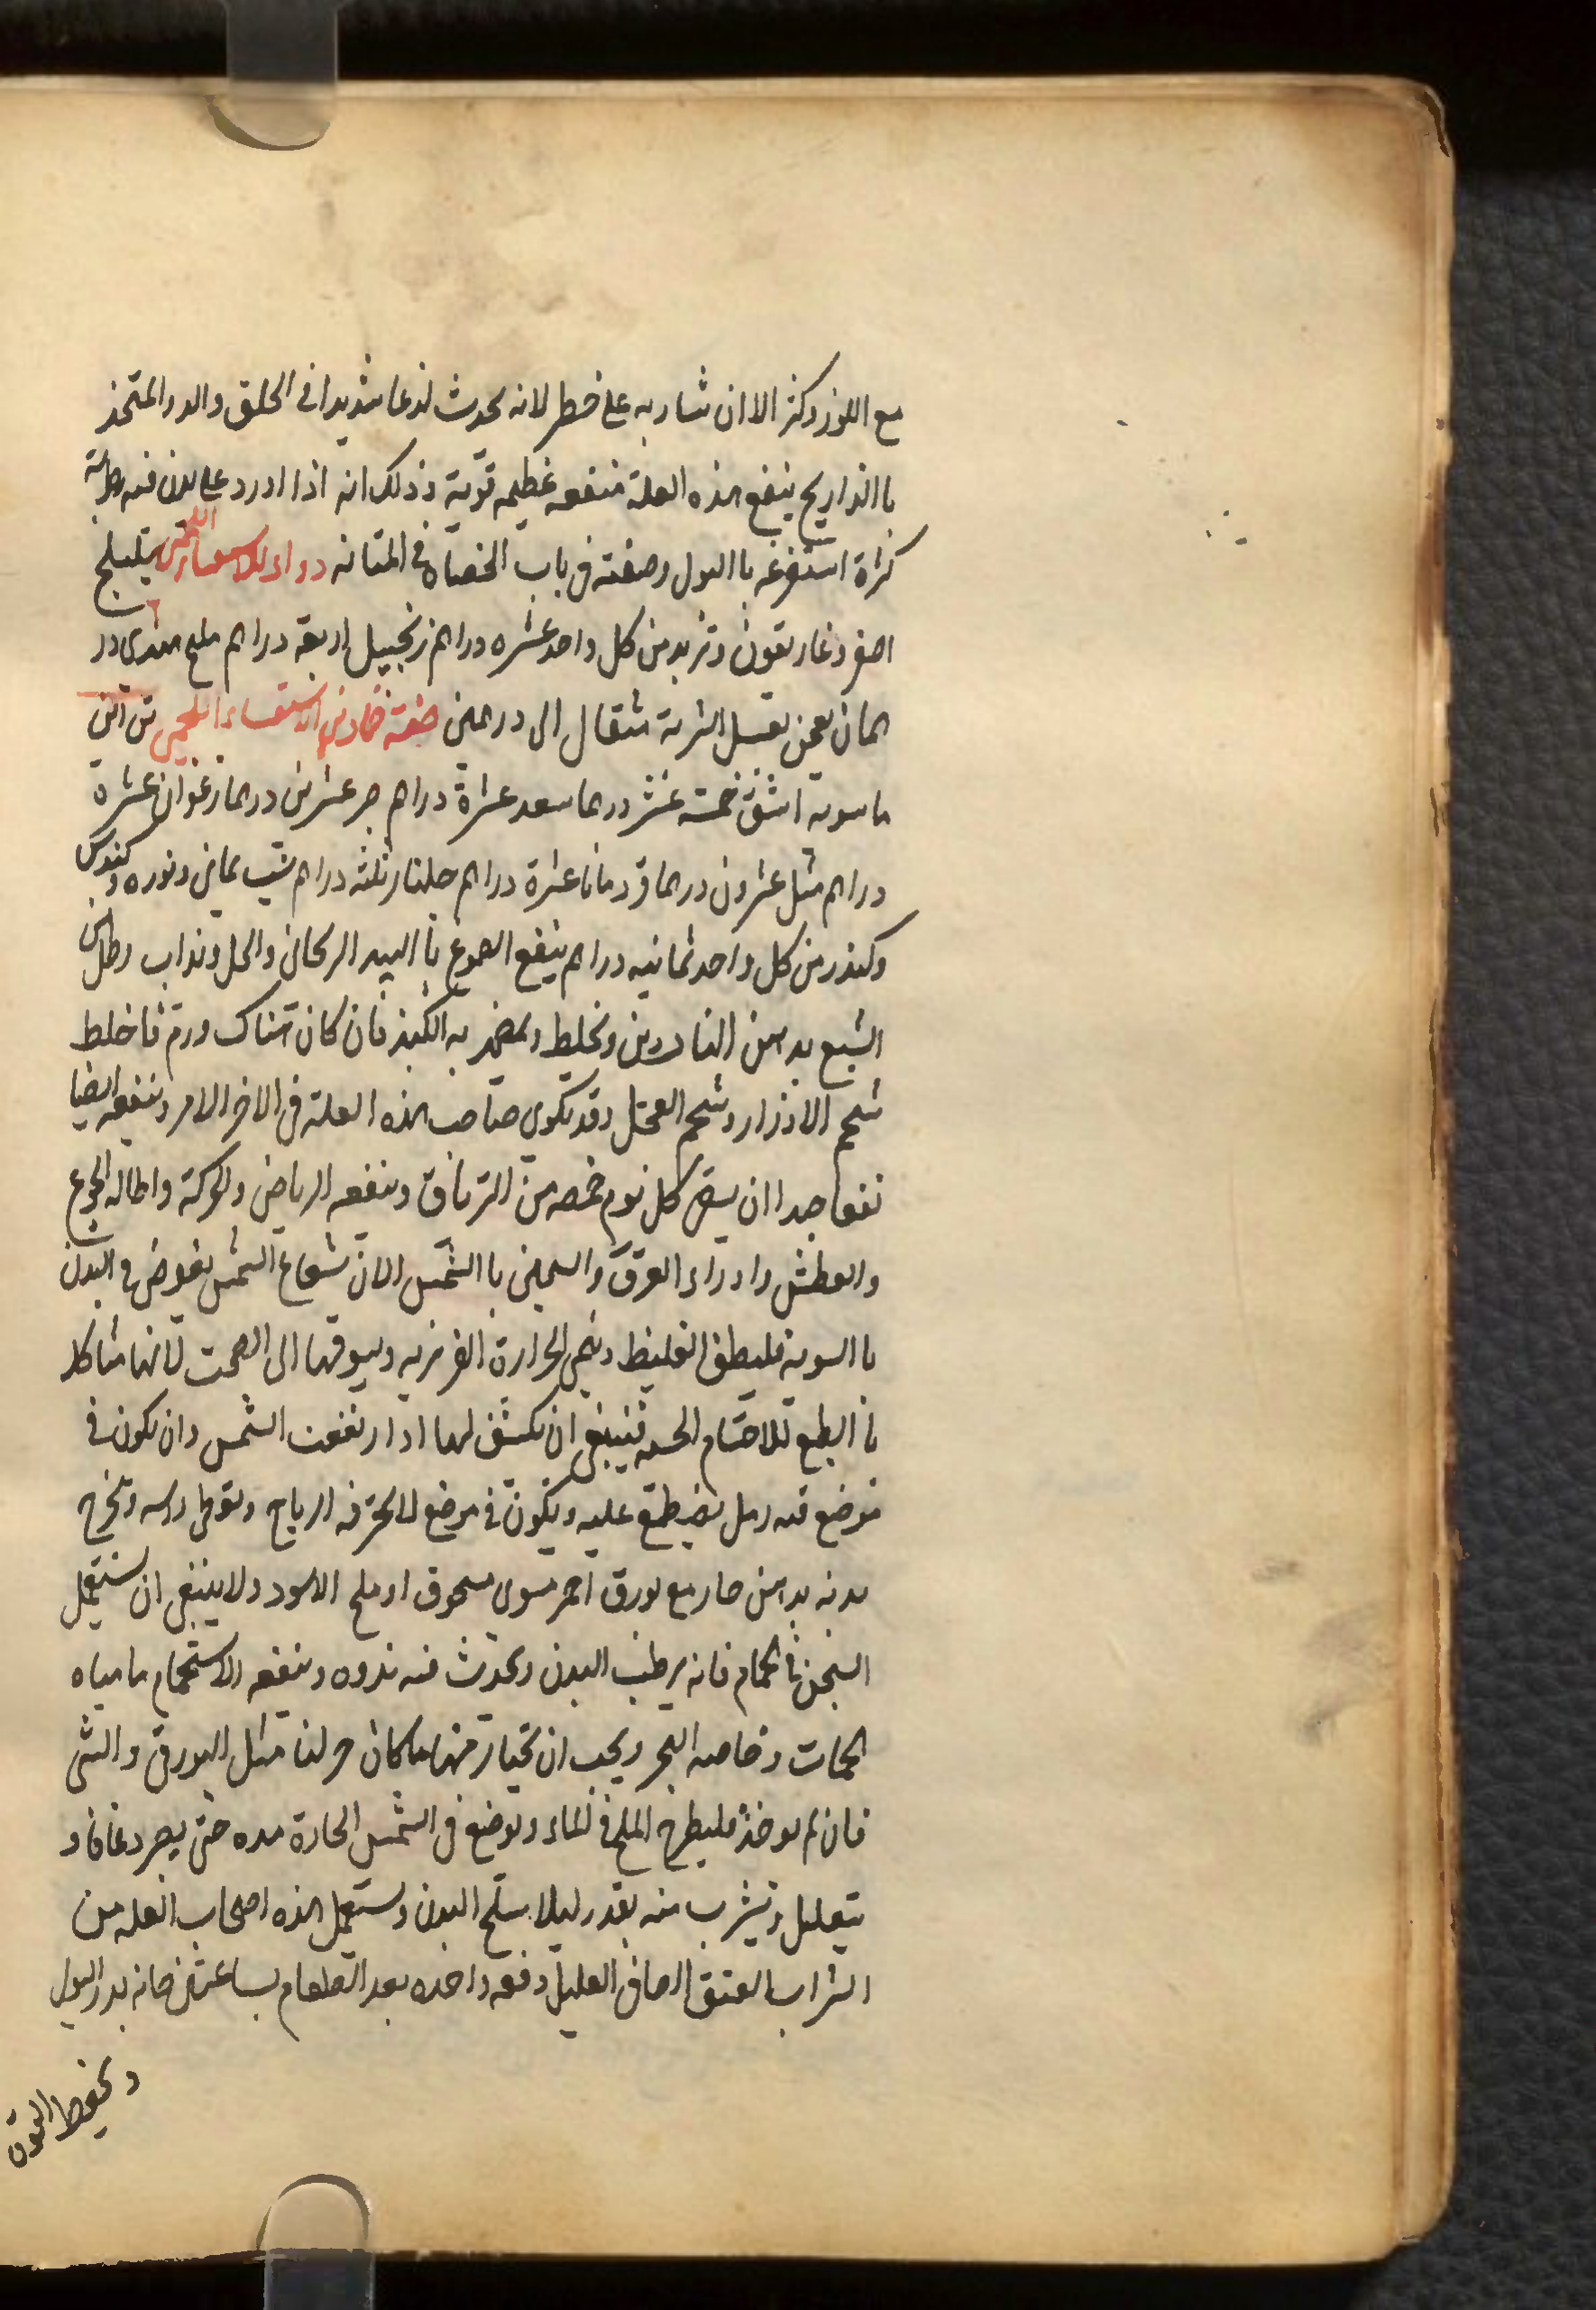 مع اللوز وكثر الا ان شاربه على خطر لانه يحدث لذعا شديدا فى الحلق والدوا المتخذ
باالذراريح ينفع هذه العلة منفعه عظيمه قوية وذلك انه اذا اورد على بدن فيه رطوبة
كثراة استفرغه باالبول وصفته فى باب الحصاه فى المتانه دواء للاستسقاء اللحمى هليلج
اصفر وغاريقون وتربد من كل واحد عشره دراهم زنجبيل اربعة دراهم ملح هندى در
همان يعجن بعسل الشربة مثقال الى درهمين صفة ضماد فى الاستسقاء اللحمى من ابن
ماسويه اشق خمسة عشر درهما سعد عشراة دراهم مر عشرين درهما زعفران عشرة
دراهم مثل عشرون درهما قردمانا عشرة دراهم جلنار ثلثه دراهم شب يمانى ونوره وكندس
وكندر من كل واحد ثمانيه دراهم ينقع الصموغ باالنبيد الريحانى والخل ويذاب رطل
الشمع بدهن الناردين ويخلط ويضمد به الكبد فان كان هناك ورم فاخلط
شحم الاوزار وشحم العجل وقد يكوى صاحب هذه العلة فى الاخر الامر وينفعه ايضا
نفعا جدا ان يسقى كل يوم حمصه من الترياق وينفعه الرياض والحركة واطاله الجوع
والعطش وادراء العرق والسخين باالشمس لان شعاع الشمس يغوص فى البدن
باالسويه فليطف الغليظ وينمى الحرارة الغريزيه ويسوقها الى الصحت لانها مشاكله
باالطبع للاجسام الحيه فينبغى ان يكشف لها اذا ارتفعت الشمس وان يكون فى
موضع فيه رمل يضطجع عليه ويكون فى موضع لا يخترقه الرياح ويغطى راسه ويمرخ
بدنه بدهن حار مع بورق احمر مشوى مسحوق او ملح الاسود ولا ينبغى ان يستعمل
السخن فى الحمام فانه يرطب البدن ويحدث فيه ندوه وينفعه الاستحمام بامياه
الحمات وخاصه البحر ويجب ان تختار منها ما كان حرلفا مثل البورق والشى
فان لم يوخذ فليطرح الملح فى الماء ويوضع فى الشمس الحارة مده حتى يصير دعافا و
يتعليل ويشرب منه بقدر ليلا يسلخ البدن ويستعمل هذه اصحاب العله من
الشراب العتيق الصافى القليل دفعه واحده بعد الطعام بساعتين فانه يدر البول
ويحفظ القوة